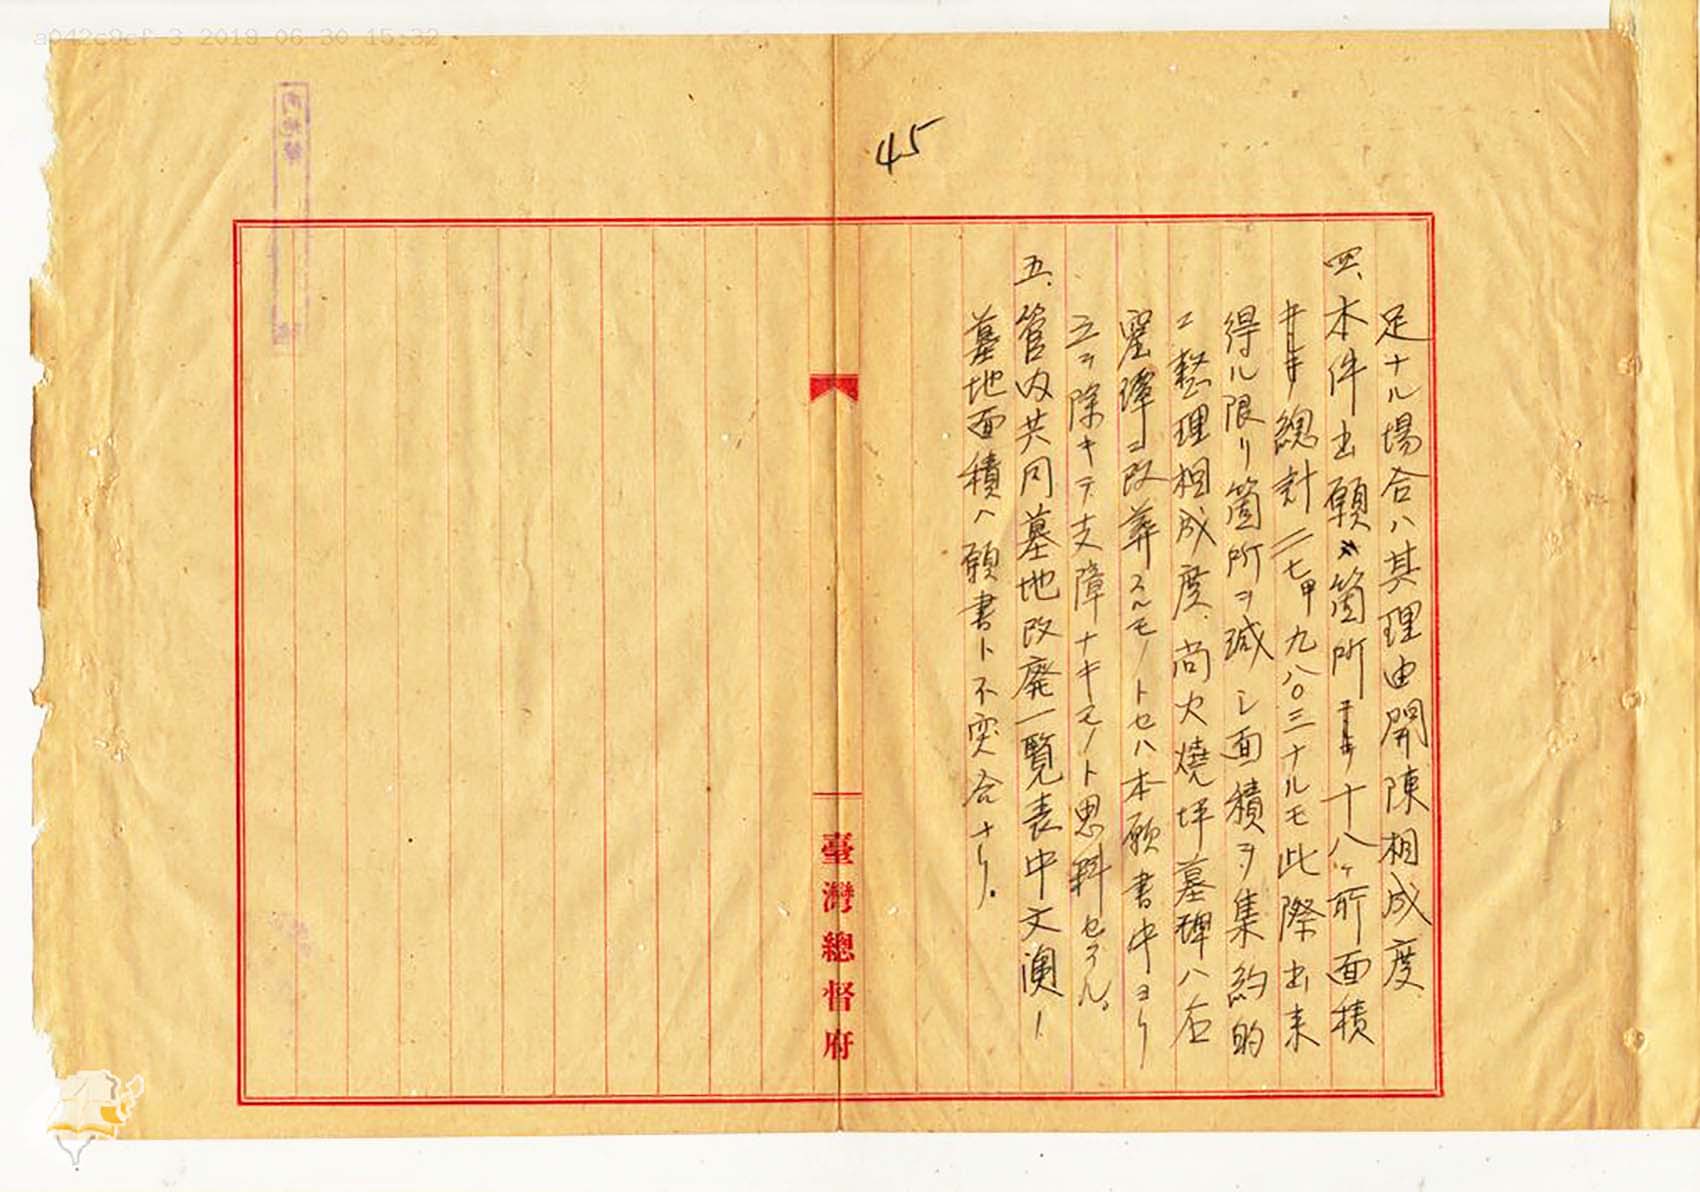 a042c9cf-3 2019-06-30 15:32
45
足ナル場合ハ其理由開陳相成度
四、本件出願箇所十八ヶ所面積
総計二七甲九八〇三ナルモ此際出来
得ル限リ箇所ヲ減シ面積ヲ集約的
ニ整理相成度、尚火燒坪墓碑ハ
窪潭ヨ改葬スルモノトセハ本願書中ヨリ
之ヲ除キテ支障ナキモノト思料セラル。
五、管内共同墓地改廃一覧表中文澳ノ
墓地面積ハ願書ト不突合ナリ。
臺灣總督府